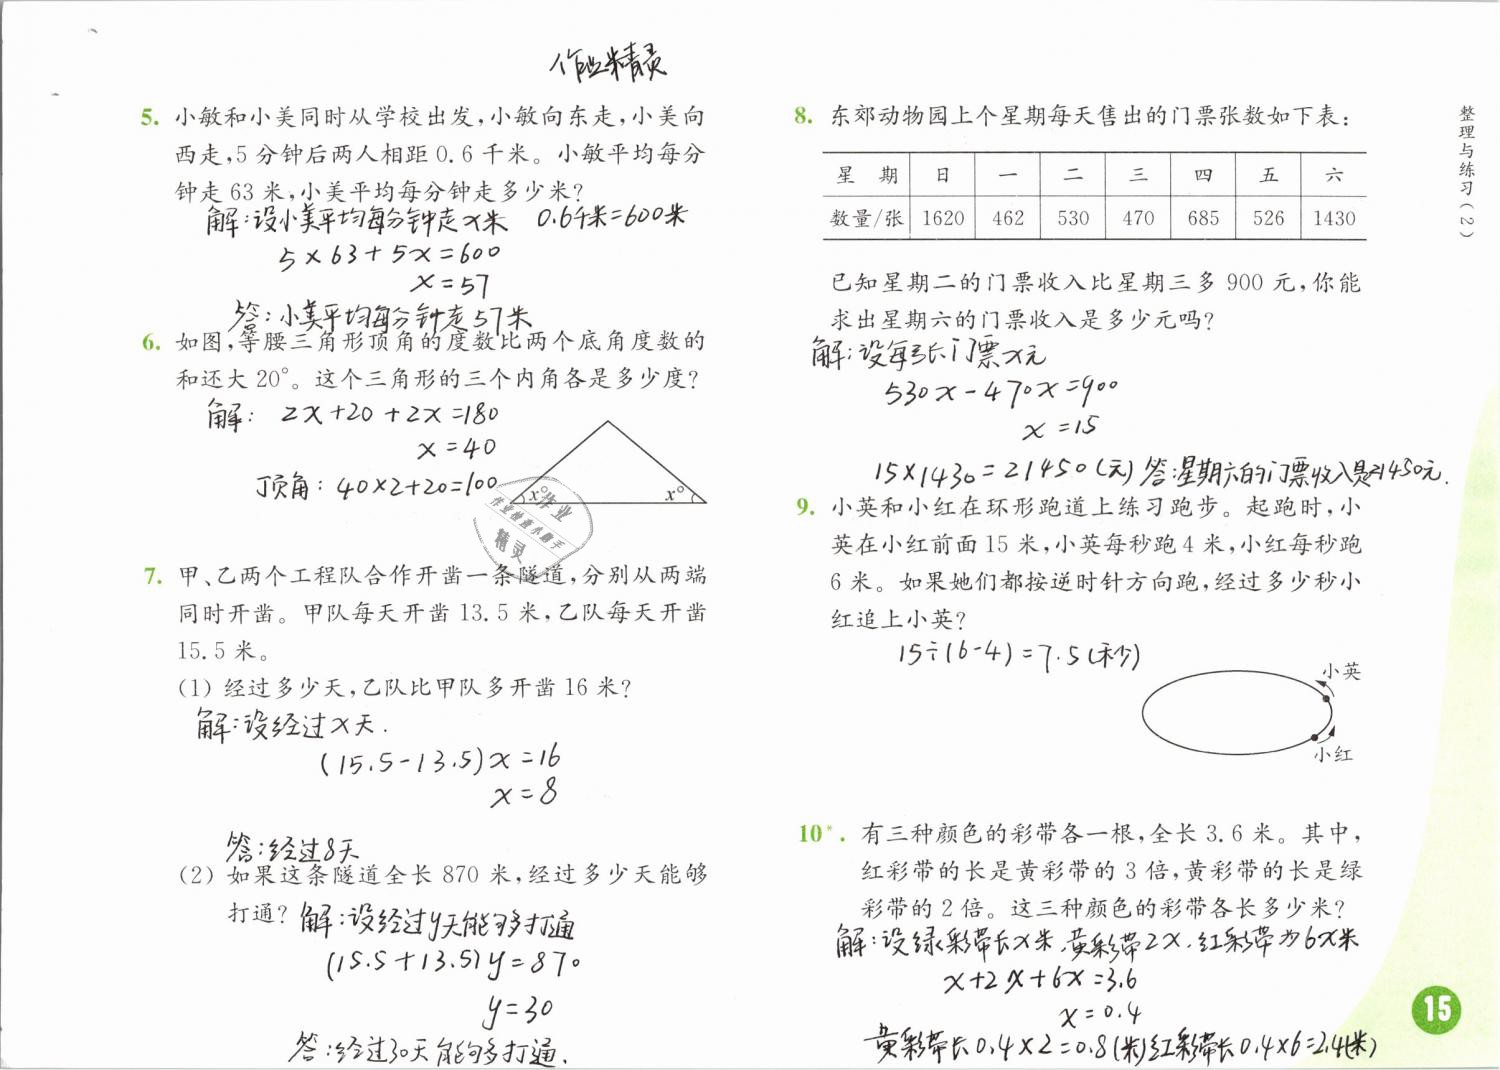 作业精灵
5. 小敏和小美同时从学校出发,小敏向东走,小美向
西走,5 分钟后两人相距 0.6 千米。小敏平均每分
钟走 63 米,小美平均每分钟走多少米?
解:设小美平均每分钟走x米 0.6千米=600米
5×63+5x=600
x=57
答:小美平均每分钟走57米
6. 如图,等腰三角形顶角的度数比两个底角度数的
和还大 20°。这个三角形的三个内角各是多少度?
解: 2x+20+2x=180
x=40
顶角: 40×2+20=100
x° x°
作业
作业的速小助手
精灵
7. 甲、乙两个工程队合作开凿一条隧道,分别从两端
同时开凿。甲队每天开凿 13.5 米,乙队每天开凿
15.5 米。
(1) 经过多少天,乙队比甲队多开凿 16 米?
解:设经过x天.
(15.5-13.5)x=16
x=8
答:经过8天
(2) 如果这条隧道全长 870 米,经过多少天能够
打通? 解:设经过y天能够打通
(15.5+13.5)y=870
y=30
答:经过30天能够打通.
8. 东郊动物园上个星期每天售出的门票张数如下表:
星 期 日 一 二 三 四 五 六
数量/张 1620 462 530 470 685 526 1430
已知星期二的门票收入比星期三多 900 元,你能
求出星期六的门票收入是多少元吗?
解:设每张门票x元
530x-470x=900
x=15
15×1430=21450(元) 答:星期六的门票收入是21450元.
9. 小英和小红在环形跑道上练习跑步。起跑时,小
英在小红前面 15 米,小英每秒跑 4 米,小红每秒跑
6 米。如果她们都按逆时针方向跑,经过多少秒小
红追上小英?
15÷(6-4)=7.5(秒)
小英
小红
10*. 有三种颜色的彩带各一根,全长 3.6 米。其中,
红彩带的长是黄彩带的 3 倍,黄彩带的长是绿
彩带的 2 倍。这三种颜色的彩带各长多少米?
解:设绿彩带长x米.黄彩带2x.红彩带为6x米
x+2x+6x=3.6
x=0.4
黄彩带长0.4×2=0.8(米)红彩带长0.4×6=2.4(米)
整理与练习(2)
15